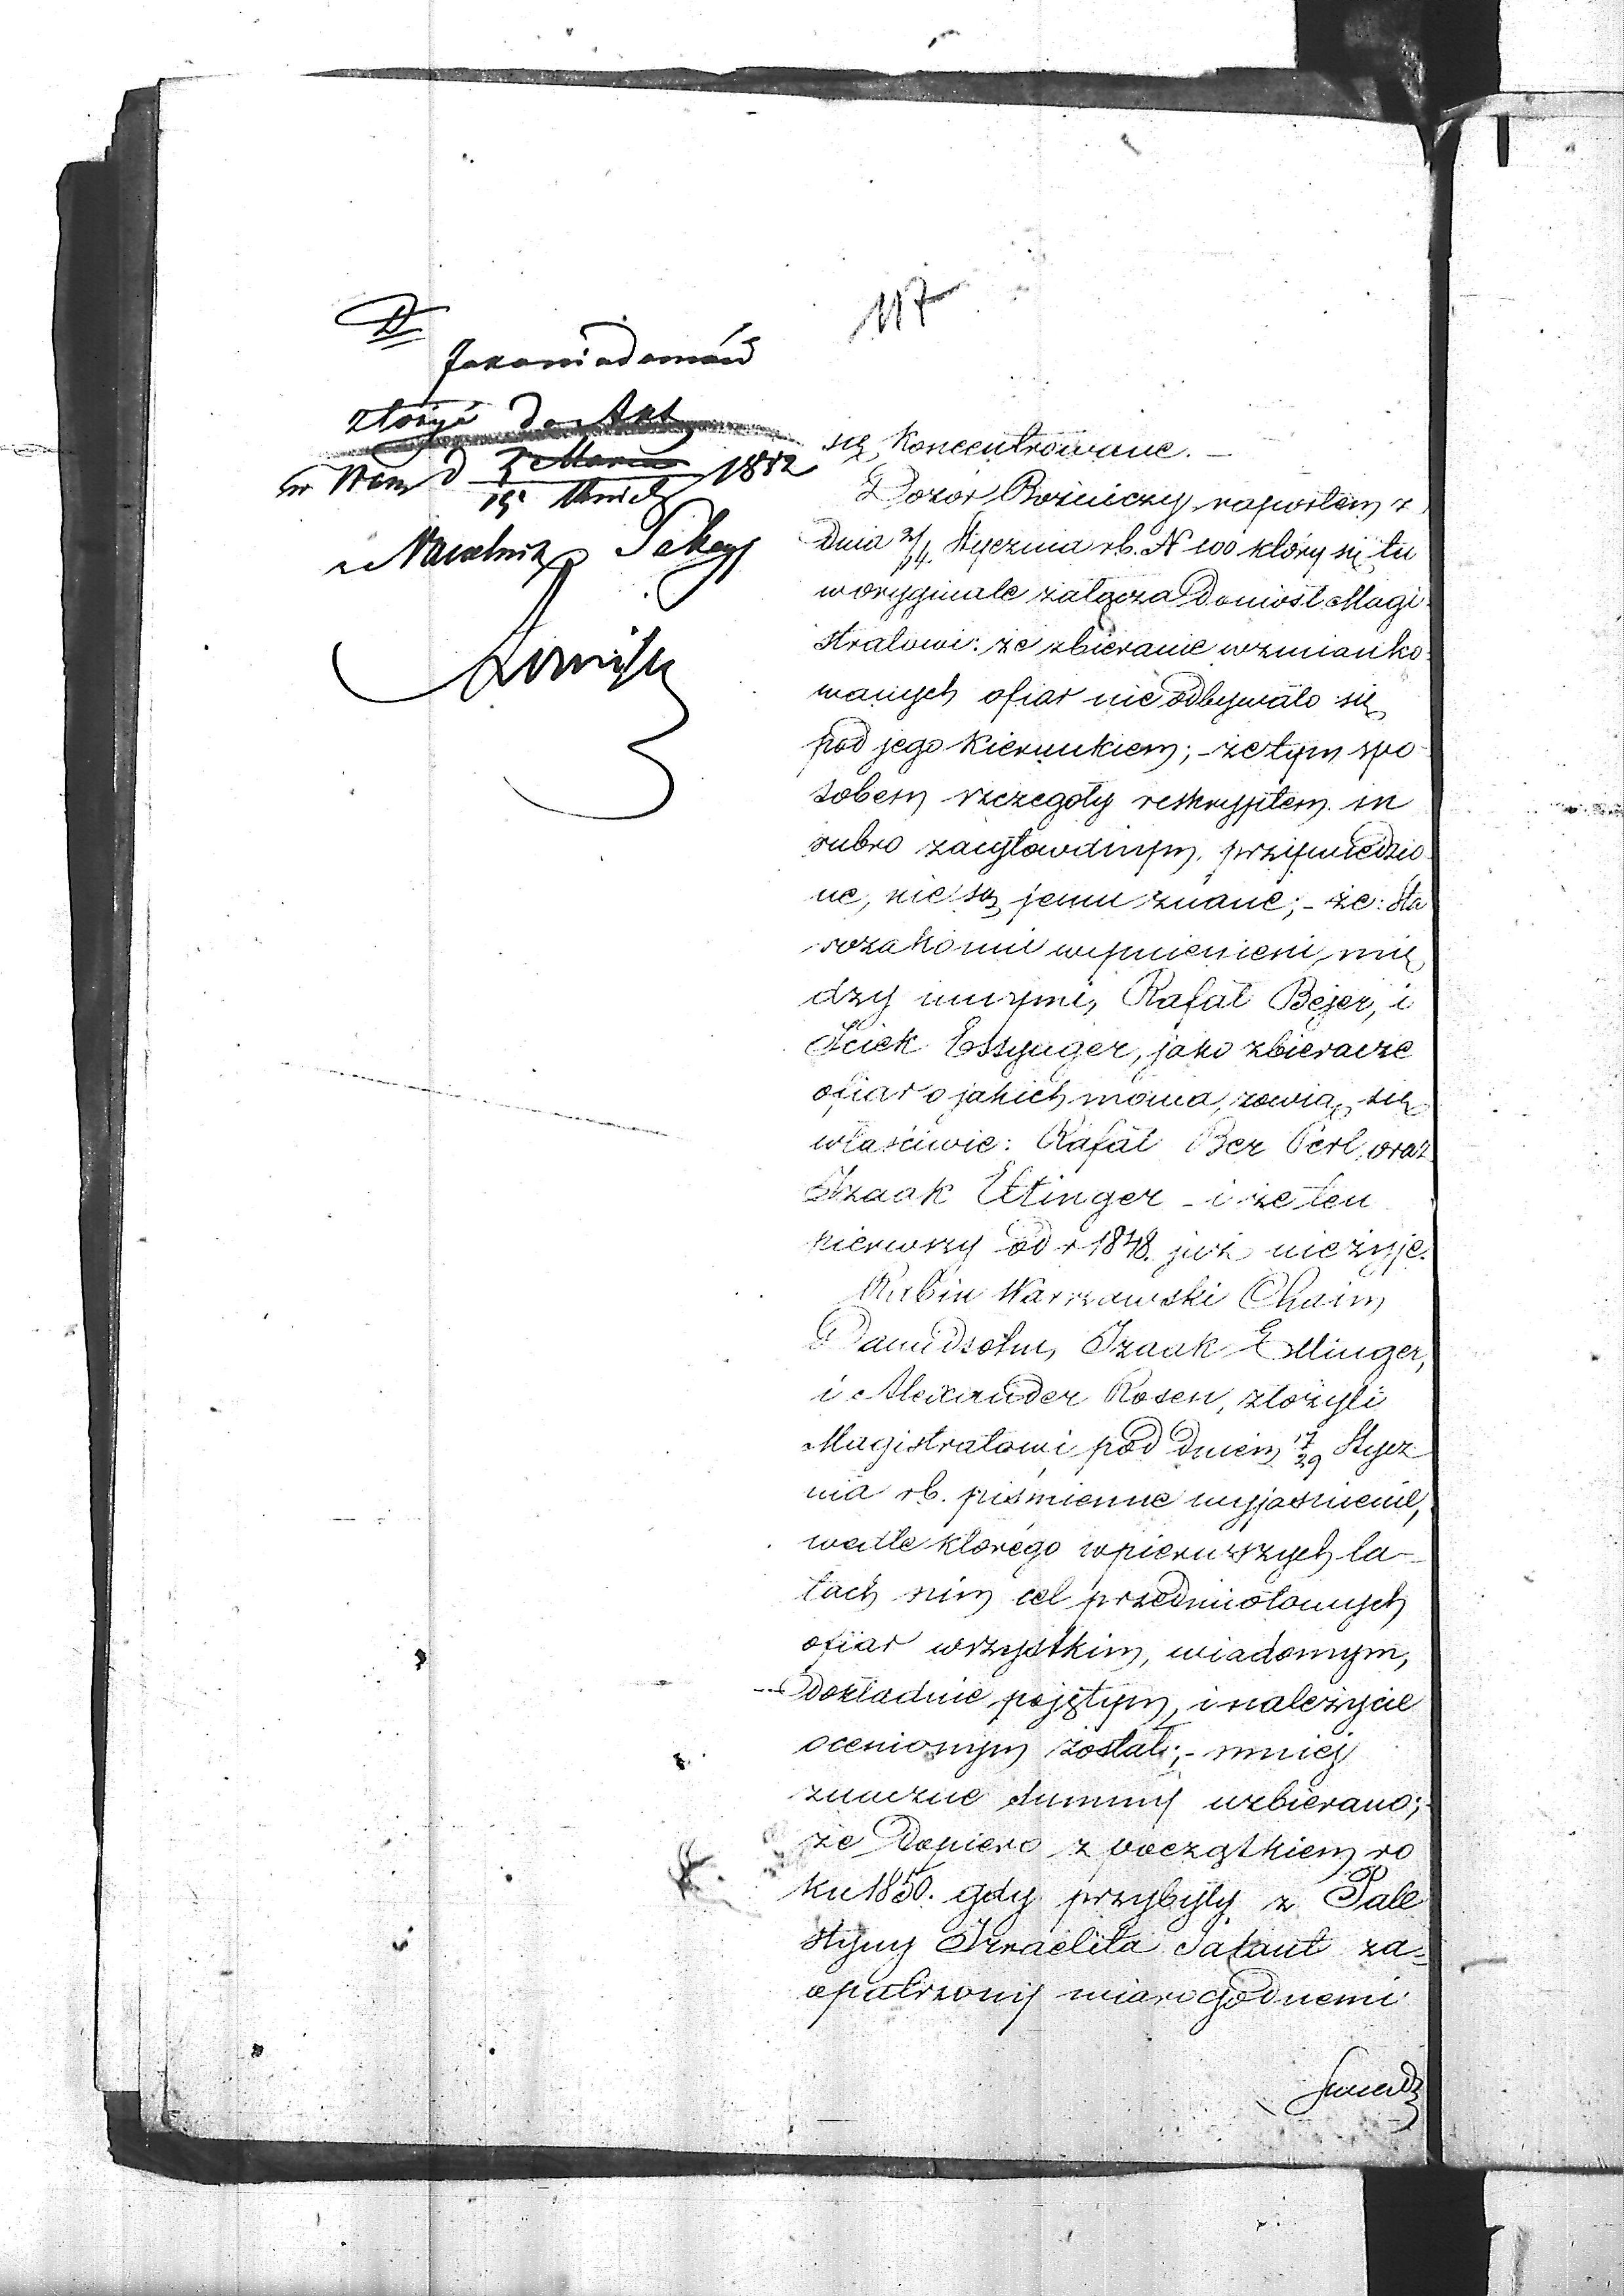 117
złożyć do Akt
1852
Naczelnik
się koncentrowane. —
Dozór Bożniczy raportem z
dnia 2/14 Stycznia rb. N 100 który się tu
w oryginale załącza doniósł Magi-
stratowi: że zbieranie wzmianko-
wanych ofiar nie odbywało się
pod jego kierunkiem; – że tym spo-
sobem szczegóły reskryptem in
rubro zacytowanym, przywiedzio-
ne, nie są jemu znane; – że: Sta
rozakonni wymienieni, mię
dzy innymi, Rafał Bejer, i
Iciek Essynger, jako zbieracze
ofiar o jakich mowa, zowią się
właściwie: Rafał Ber Perl, oraz
Izaak Ettinger – i że ten
pierwszy od r 1848. już nie żyje.
Rubin Warszawski Chaim
Dawidsohn, Izaak Ettinger,
i Alexander Rosen, złożyli
Magistratowi pod dniem 17/29 Stycz
nia rb. piśmienne wyjaśnienie,
wedle którego w pierwszych la-
tach nim cel przedmiotowych
ofiar wszystkim, wiadomym,
dokładnie pojętym, i należycie
ocenionym został; – mniej
znaczne summy uzbierano;
że dopiero z początkiem ro
ku 1850. gdy przybyły z Pale
styny Izraelita Salant za-
opatrzony wiarogodnemi